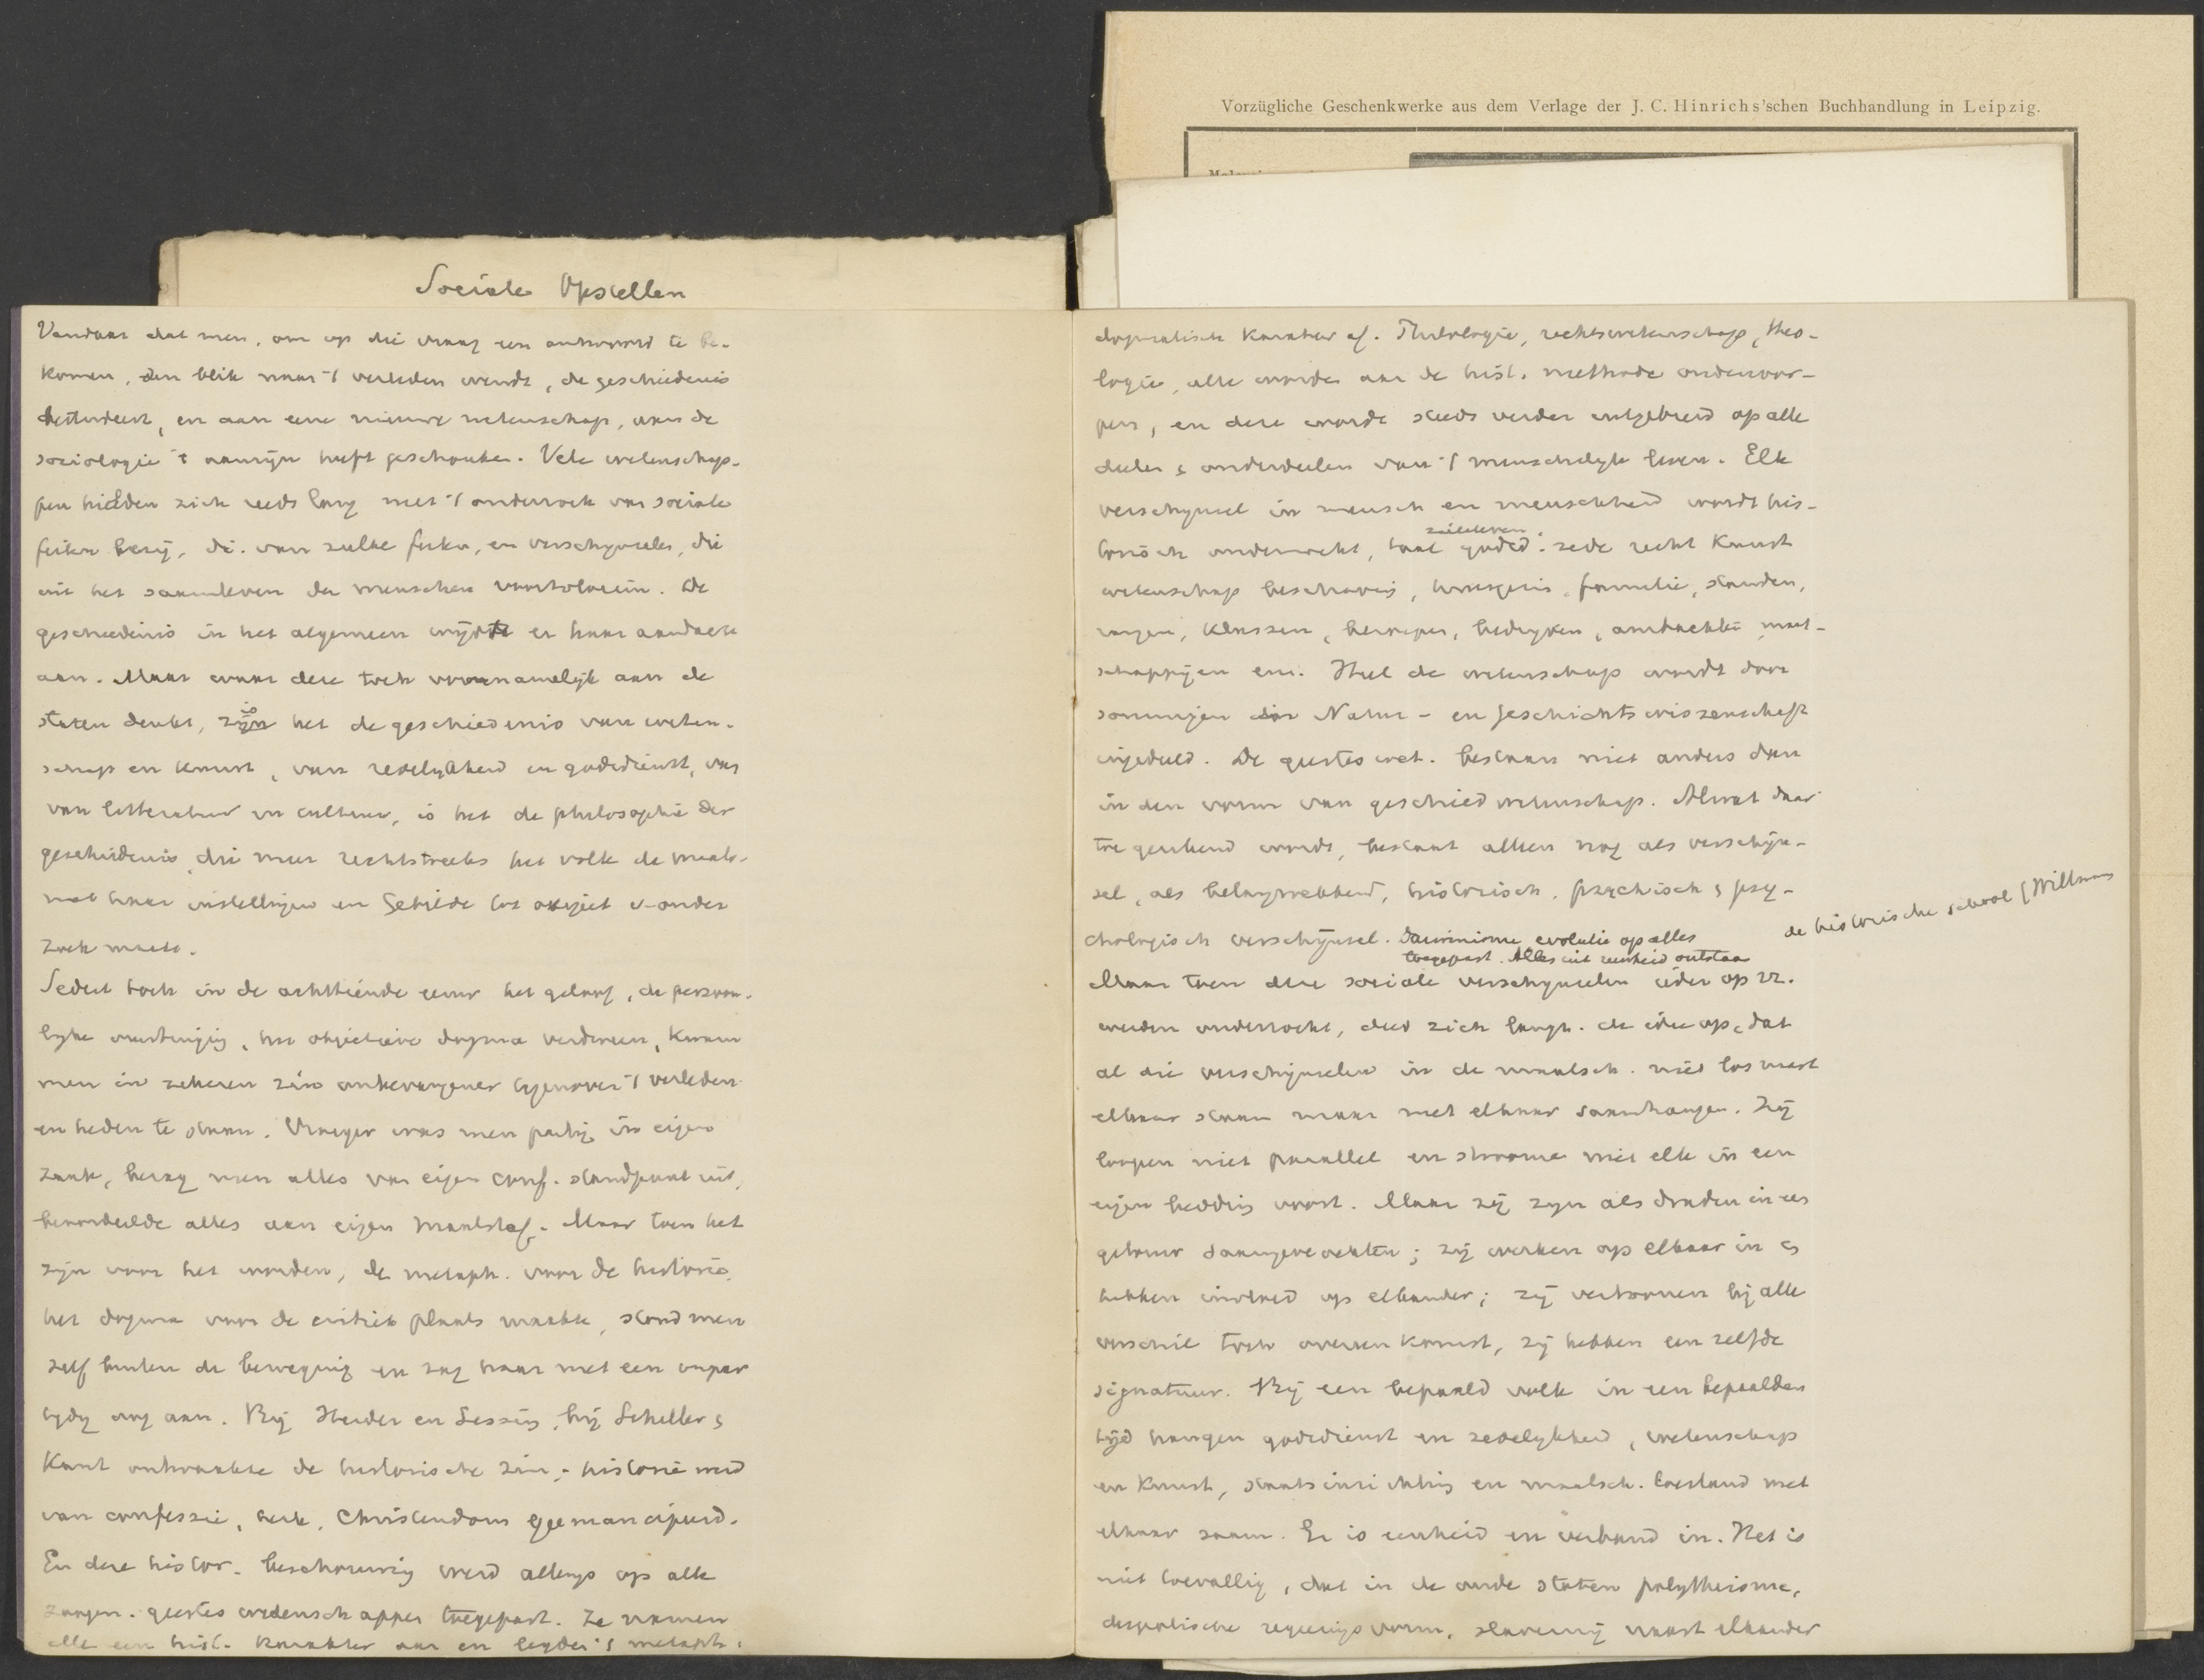 Vorzügliche Geschenkwerke aus dem Verlage der J. C. Hinrichs'schen Buchhandlung in Leipzig.
Sociale Opstellen
Vandaar dat men, om op die vraag een antwoord te be-
komen, den blik naar 't verleden wendt, de geschiedenis
bestudeert, en aan eene nieuwe wetenschap, aan de
sociologie 't aanzijn heeft geschonken. Vele wetenschap-
pen hielden zich reeds lang met 't onderzoek van sociale
feiten bezig, d.i. van zulke feiten, en verschijnselen, die
uit het saamleven der menschen voortvloeien. De
geschiedenis in het algemeen wijdde er haar aandacht
aan. Maar waar deze toch voornamelijk aan de
staten denkt, is het de geschiedenis van weten-
schap en kunst, van zedelijkheid en godsdienst, van
van litteratuur en cultuur, is het de philosophie der
geschiedenis, die meer rechtstreeks het volk de maats-
met haar instellingen en Gebilde tot object v. onder
zoek maakt.
Sedert toch in de achttiende eeuw het geloof, de persoon-
lijke overtuiging, het objectieve dogma verdween, kwam
men in zekeren zin onbevangener tegenover 't verleden
en heden te staan. Vroeger was men partij in eigen
zaak, bezag men alles van eigen conf. standpunt uit,
beoordeelde alles aan eigen maatstaf. Maar toen het
zijn voor het worden, de metaph. voor de historie,
het dogma voor de critiek plaats maakte, stond men
zelf buiten de beweging en zag haar met een onpar
tijdig oog aan. Bij Herder en Lessing, bij Schiller &
Kant ontwaakte de historische zin; historie werd
van confessie, kerk, Christendom geemancipeerd.
En deze histor. beschouwing werd allengs op alle
zoogen. geesteswetenschappen toegepast. Ze namen
alle een hist. karakter aan en legden 't metaph.
dogmatisch karakter af. Philologie, rechtswetenschap, theo-
logie, alle worden aan de hist. methode onderwor-
pen, en deze wordt steeds verder uitgebreid op alle
deelen & onderdeelen van 't menschelijk leven. Elk
verschijnsel in mensch en menschheid wordt his-
zieleleven
torisch onderzocht, taal godsd. zede recht kunst
wetenschap beschaving, huisgezin, familie, standen,
rangen, klassen, beroepen, bedrijven, ambachten, maat-
schappijen enz. Heel de wetenschap wordt door
sommigen in Natur- en Geschichtswissenschaft
ingedeeld. De geesteswet. bestaan niet anders dan
in den vorm van geschiedwetenschap. Alwat daar
toe gerekend wordt, bestaat alleen nog als verschijn-
sel, als belangwekkend, historisch, psychisch & psy-
chologisch verschijnsel. Darwinisme, evolutie op alles
toegepast. Alles uit eenheid ontstaan
de historische school (Willmann
Maar toen deze sociale verschijnselen ieder op zz.
werden onderzocht, deed zich langz. de idee op, dat
al die verschijnselen in de maatsch. niet los naast
elkaar staan maar met elkaar saamhangen. Zij
loopen niet parallel en stroomen niet elk in een
eigen bedding voort. Maar zij zijn als draden in een
getouw saamgevlochten; zij werken op elkaar in &
hebben invloed op elkander; zij vertoonen bij alle
verschil toch overeenkomst, zij hebben een zelfde
signatuur. Bij een bepaald volk in een bepaalden
tijd hangen godsdienst en zedelijkheid, wetenschap
en kunst, staatsinrichting en maatsch. toestand met
elkaar saam. Er is eenheid en verband in. Het is
niet toevallig, dat in de oude staten polytheisme,
despotische regeeringsvorm, slavernij naast elkander